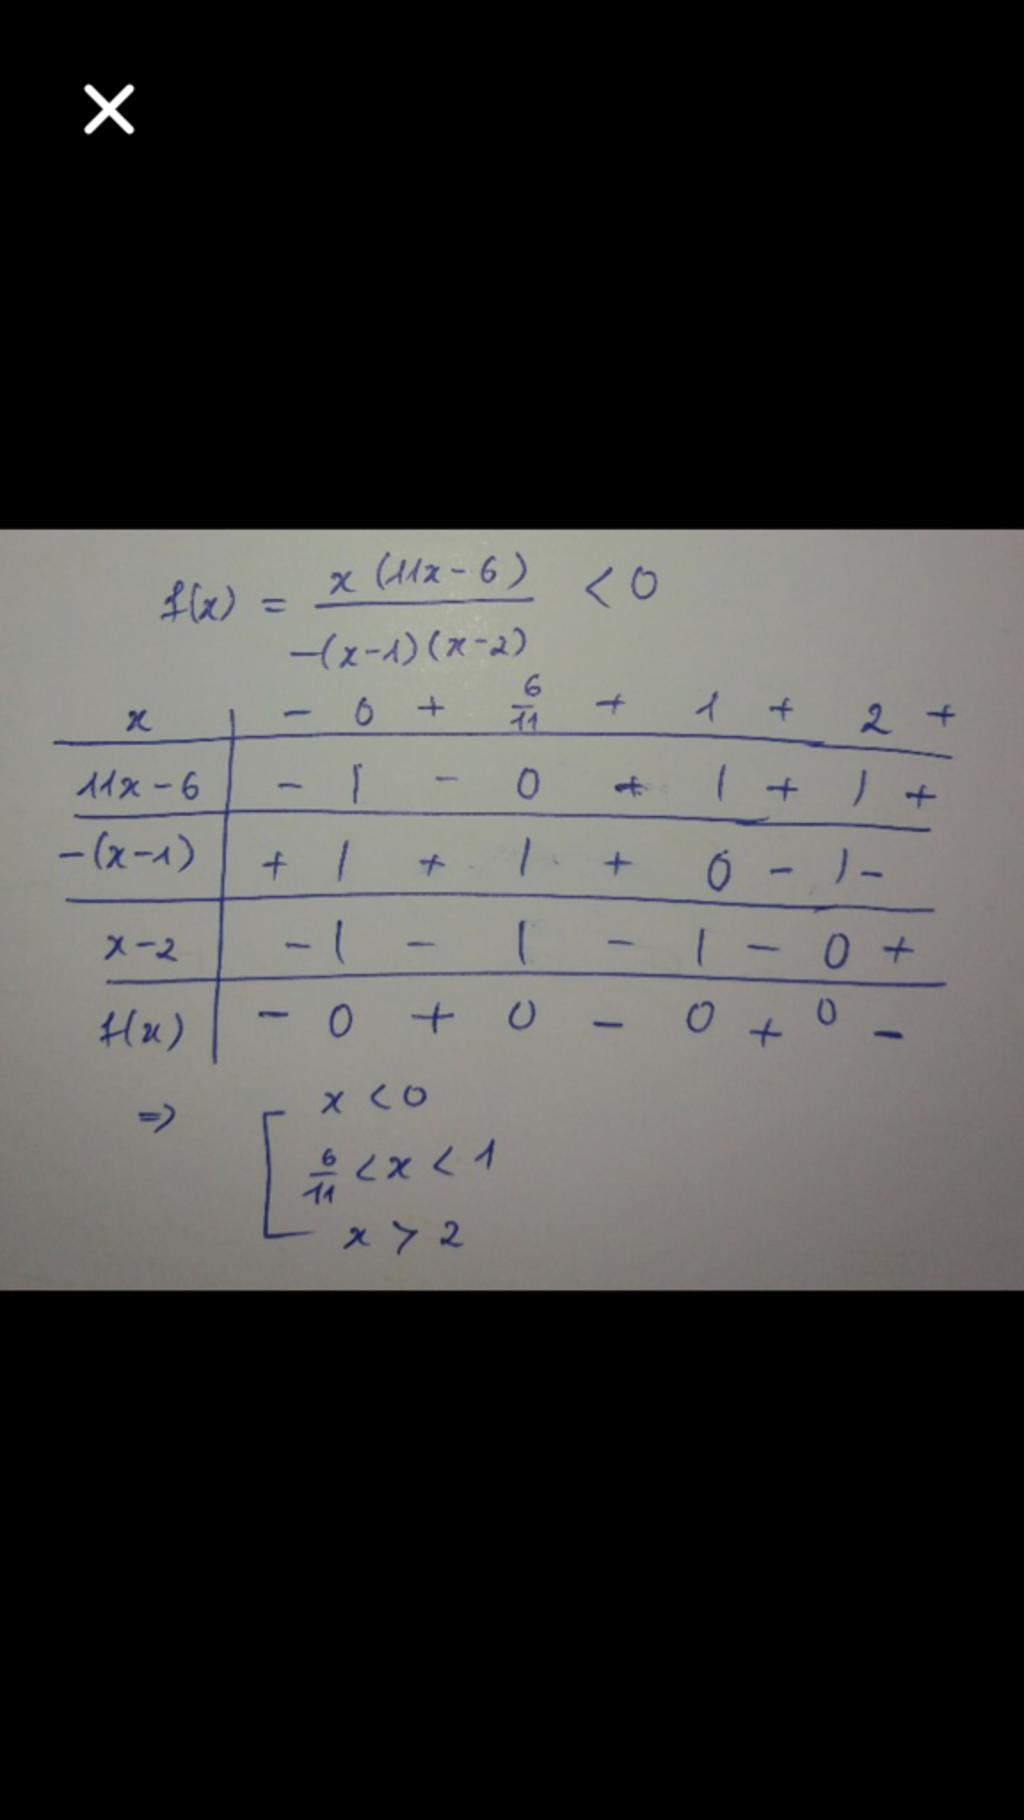 f(x) = x(11x-6) / -(x-1)(x-2) < 0
x | - 0 + 6/11 + 1 + 2 +
11x-6 | - | - 0 + | + | +
-(x-1) | + | + | + 0 - | -
x-2 | - | - | - | - 0 +
f(x) | - 0 + 0 - 0 + 0 -
=> [ x < 0
6/11 < x < 1
x > 2